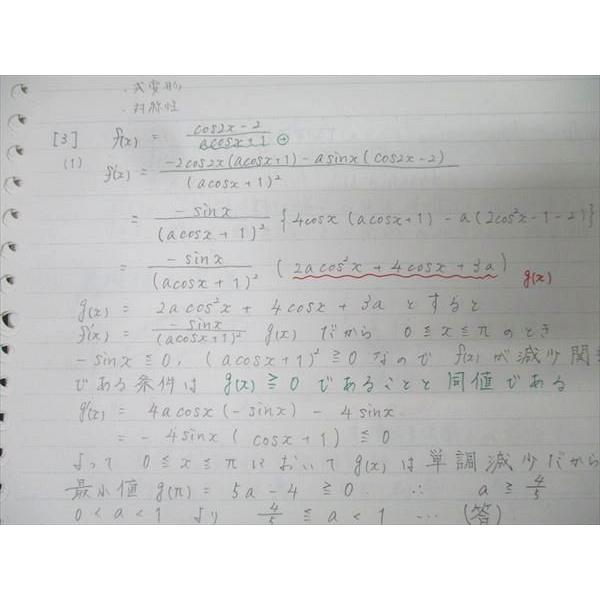 ・式変形
・対称性
[3] f(x) = \frac{cos2x-2}{acosx+1} ⊕
(1) f'(x) = \frac{-2cos2x(acosx+1) - asinx(cos2x-2)}{(acosx+1)^2}
= \frac{-sinx}{(acosx+1)^2} {4cosx(acosx+1) - a(2cos^2x-1-2)}
= \frac{-sinx}{(acosx+1)^2} (2acos^2x + 4cosx + 3a) g(x)
g(x) = 2acos^2x + 4cosx + 3a とすると
f'(x) = \frac{-sinx}{(acosx+1)^2} g(x) だから 0 ≦ x ≦ π のとき
-sinx ≦ 0, (acosx+1)^2 ≧ 0 なので f(x) が減少関数
である条件は g(x) ≧ 0 であることと同値である
g'(x) = 4acosx(-sinx) - 4sinx
= -4sinx(cosx+1) ≦ 0
よって 0 ≦ x ≦ π において g(x) は単調減少だから
最小値 g(π) = 5a-4 ≧ 0 ∴ a ≧ \frac{4}{5}
0 < a < 1 より \frac{4}{5} ≦ a < 1 … (答)